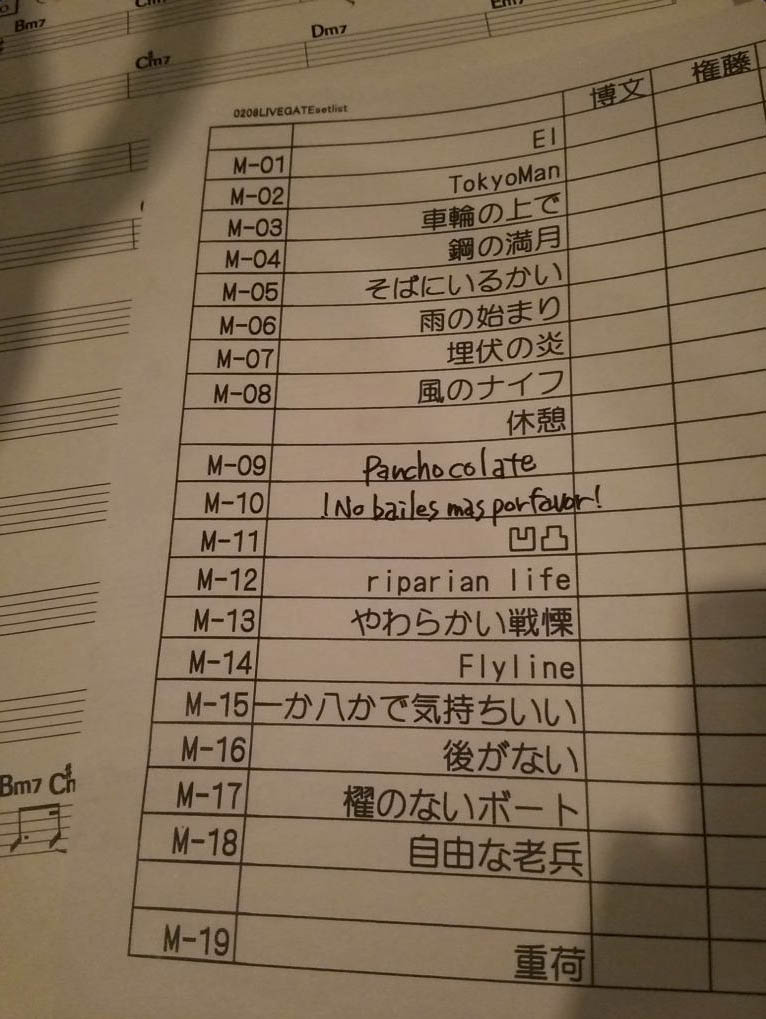 Bm7
C#m7
Dm7
Em7
0208LIVEGATEsetlist
博文 権藤
M-01 EI
M-02 TokyoMan
M-03 車輪の上で
M-04 鋼の満月
M-05 そばにいるかい
M-06 雨の始まり
M-07 埋伏の炎
M-08 風のナイフ
休憩
M-09 Panchocolate
M-10 ¡No bailes mas porfavor!
M-11 凹凸
M-12 riparian life
M-13 やわらかい戦慄
M-14 Flyline
M-15 一か八かで気持ちいい
M-16 後がない
M-17 櫂のないボート
M-18 自由な老兵
M-19 重荷
Bm7